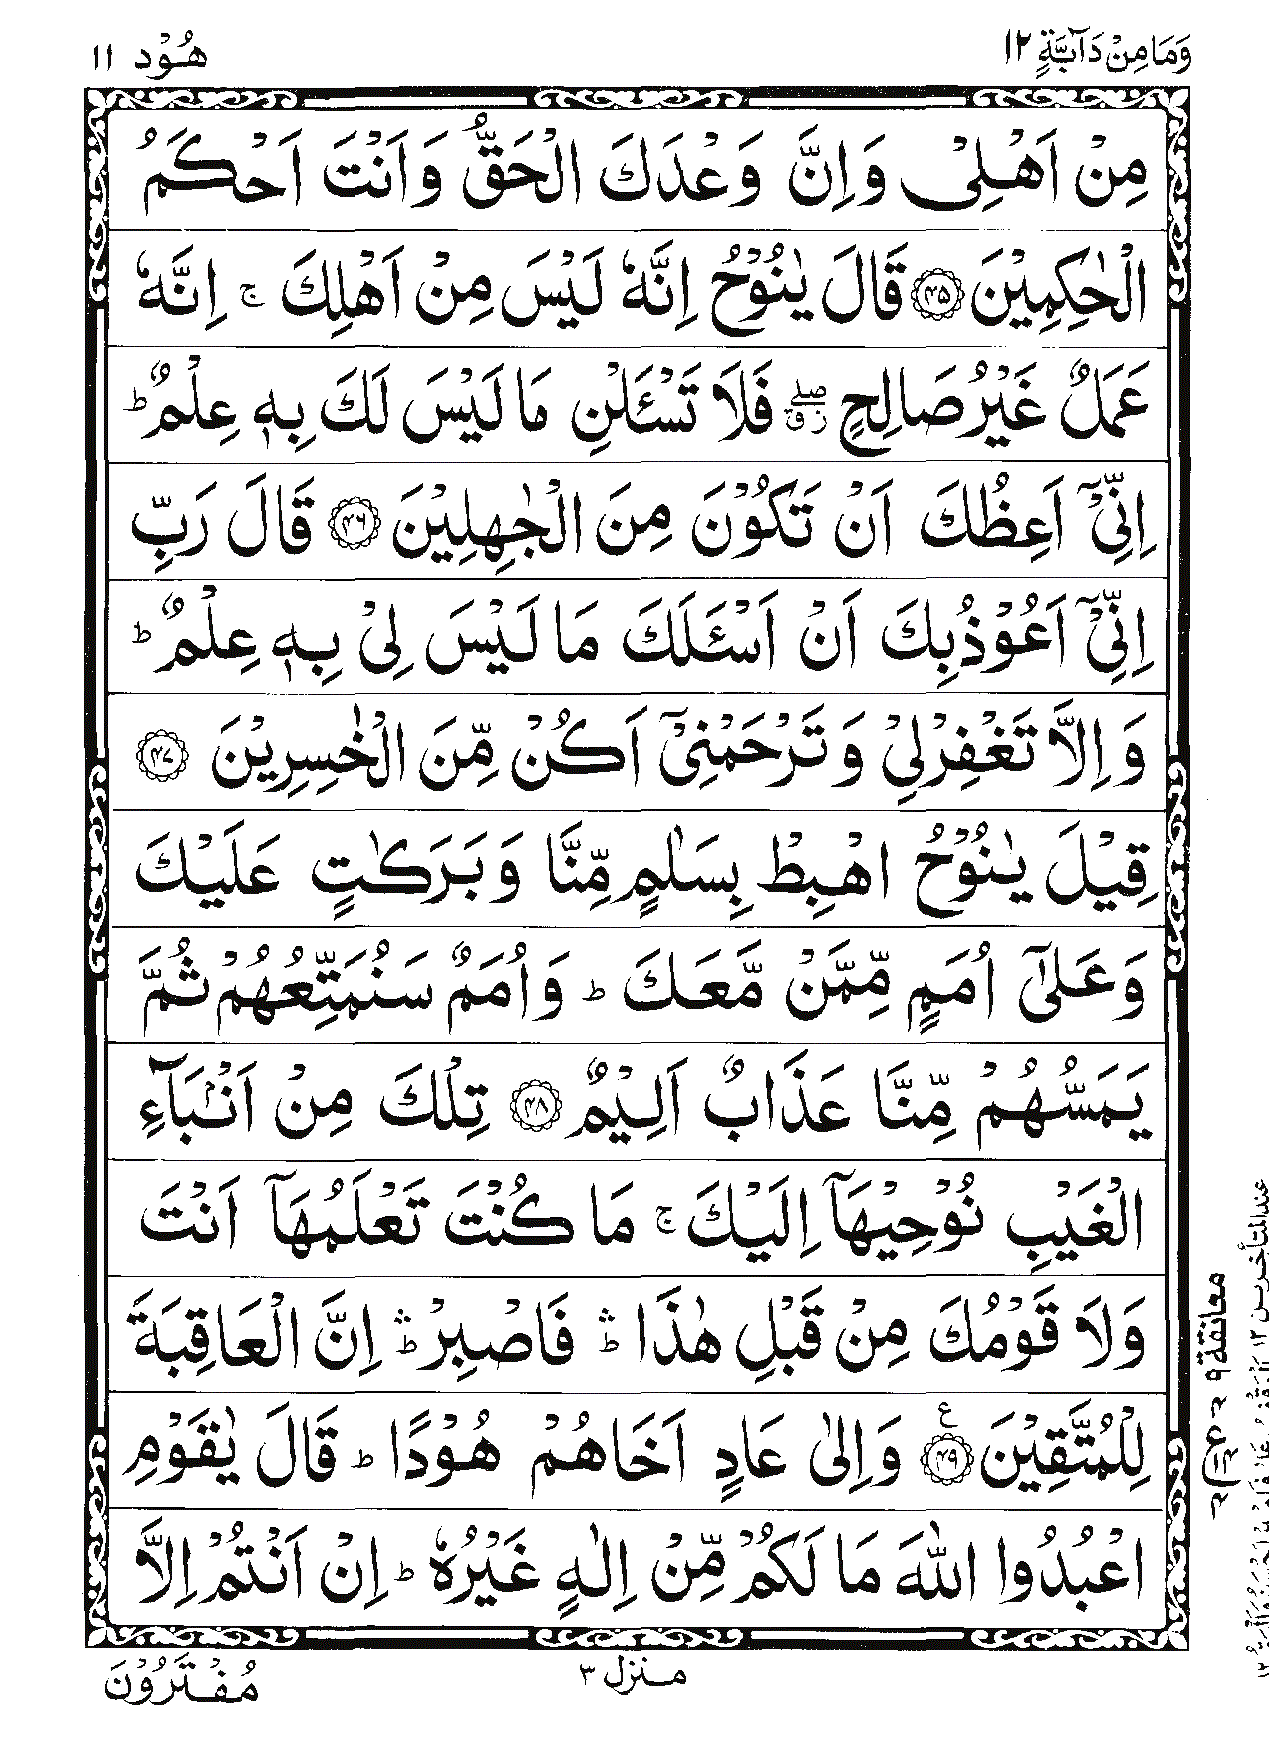 وَمَا مِنْ دَآبَّةٍ ١٢
هُوْد ١١
مِنْ اَهْلِىْ وَاِنَّ وَعْدَكَ الْحَقُّ وَاَنْتَ اَحْكَمُ
الْحٰكِمِيْنَ ﴿٤٥﴾ قَالَ يٰنُوْحُ اِنَّهٗ لَيْسَ مِنْ اَهْلِكَ ۚ اِنَّهٗ
عَمَلٌ غَيْرُ صَالِحٍ ۖ ق ز فَلَا تَسْـَٔلْنِ مَا لَيْسَ لَكَ بِهٖ عِلْمٌ ؕ
اِنِّىْٓ اَعِظُكَ اَنْ تَكُوْنَ مِنَ الْجٰهِلِيْنَ ﴿٤٦﴾ قَالَ رَبِّ
اِنِّىْٓ اَعُوْذُ بِكَ اَنْ اَسْـَٔلَكَ مَا لَيْسَ لِىْ بِهٖ عِلْمٌ ؕ
وَاِلَّا تَغْفِرْلِىْ وَتَرْحَمْنِىْٓ اَكُنْ مِّنَ الْخٰسِرِيْنَ ﴿٤٧﴾
قِيْلَ يٰنُوْحُ اهْبِطْ بِسَلٰمٍ مِّنَّا وَبَرَكٰتٍ عَلَيْكَ
وَعَلٰٓى اُمَمٍ مِّمَّنْ مَّعَكَ ؕ وَاُمَمٌ سَنُمَتِّعُهُمْ ثُمَّ
يَمَسُّهُمْ مِّنَّا عَذَابٌ اَلِيْمٌ ﴿٤٨﴾ تِلْكَ مِنْ اَنْۢبَآءِ
الْغَيْبِ نُوْحِيْهَآ اِلَيْكَ ۚ مَا كُنْتَ تَعْلَمُهَآ اَنْتَ
وَلَا قَوْمُكَ مِنْ قَبْلِ هٰذَا ۛؕ فَاصْبِرْ ۛؕ اِنَّ الْعَاقِبَةَ
لِلْمُتَّقِيْنَ ﴿٤٩﴾ ع وَاِلٰى عَادٍ اَخَاهُمْ هُوْدًا ؕ قَالَ يٰقَوْمِ
اعْبُدُوا اللّٰهَ مَا لَكُمْ مِّنْ اِلٰهٍ غَيْرُهٗ ؕ اِنْ اَنْتُمْ اِلَّا
معانقة ٩
عند المتأخرين ١٢
منزل ٣
مُفْتَرُوْنَ